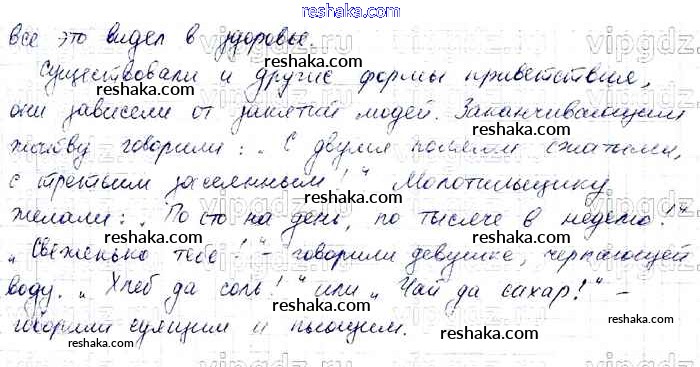 reshaka.com
все это видел в здоровье.
reshaka.com
Существовали и другие формы приветствия,
они зависели от занятий людей. Заканчивающим
reshaka.com
жатву говорили: „С двумя полями сжатыми,
с третьим засеянным!" Молотильщику
reshaka.com
желали: „По сто на день, по тысяче в неделю!"
reshaka.com
„Свеженько тебе!" – говорили девушке, черпающей
воду. „Хлеб да соль!" или „Чай да сахар!" –
reshaka.com
говорили едящим и пьющим.
reshaka.com
vipgdz.ru